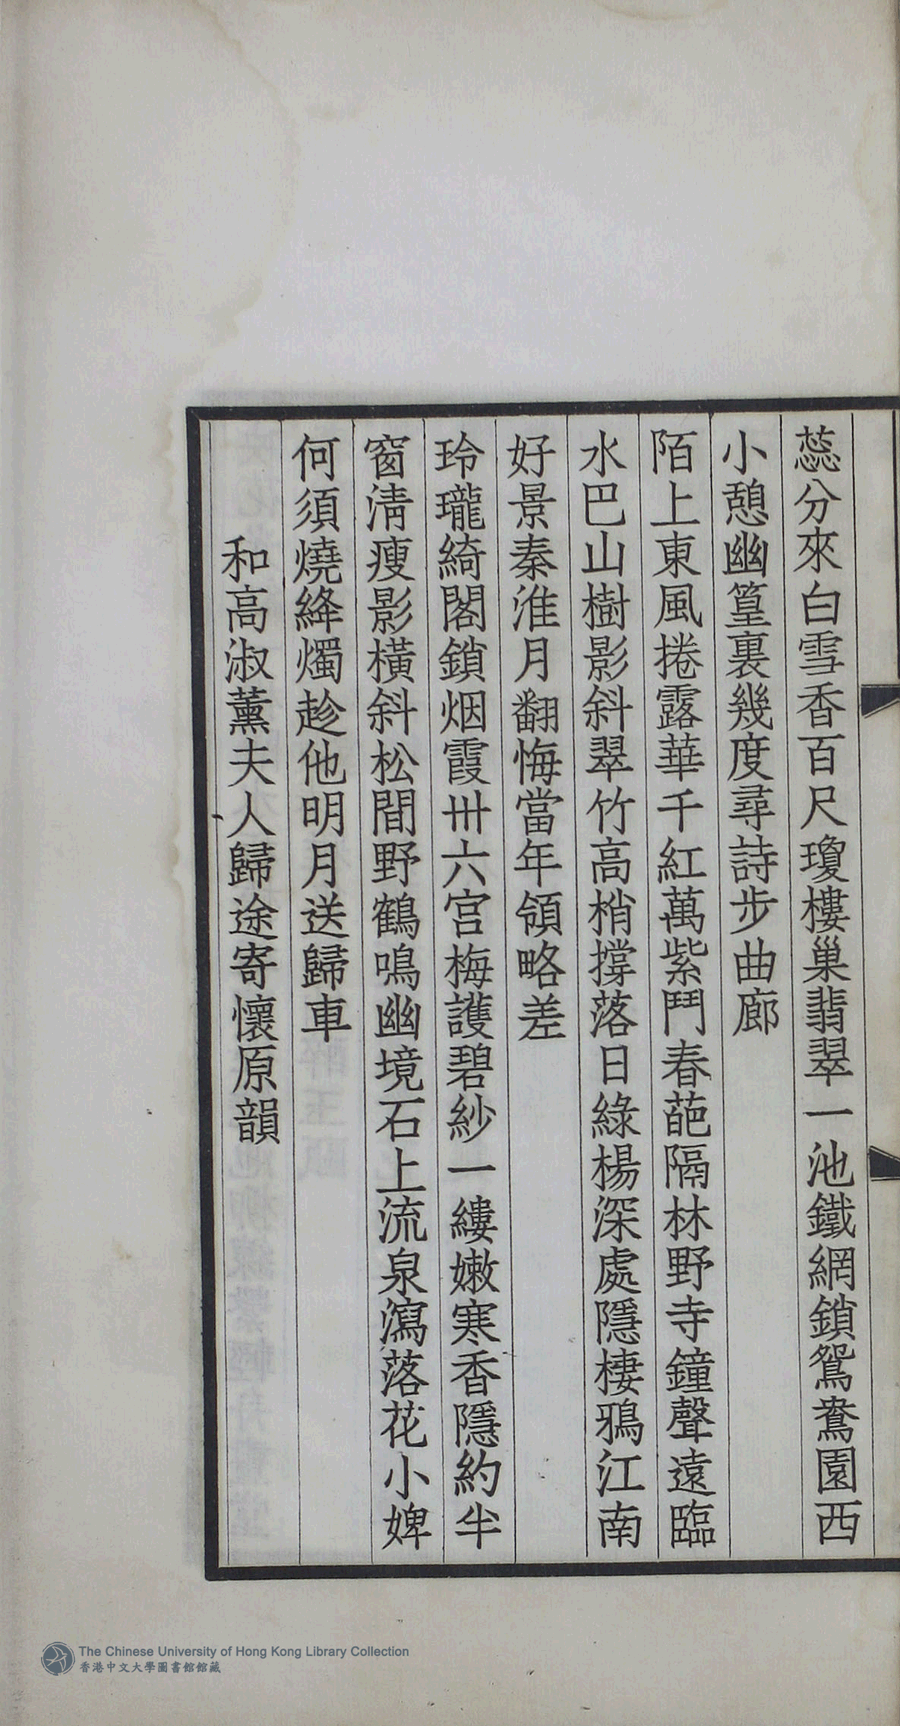 蕊分來白雪香百尺瓊樓巢翡翠一池鐵網鎖鴛鴦園西
小憩幽篁裏幾度尋詩步曲廊
陌上東風捲露華千紅萬紫鬥春葩隔林野寺鐘聲遠臨
水巴山樹影斜翠竹高梢撐落日綠楊深處隱棲鴉江南
好景秦淮月翻悔當年領略差
玲瓏綺閣鎖烟霞卅六宮梅護碧紗一縷嫩寒香隱約半
窗淸瘦影橫斜松間野鶴鳴幽境石上流泉瀉落花小婢
何須燒絳燭趁他明月送歸車
和高淑薰夫人歸途寄懷原韻
The Chinese University of Hong Kong Library Collection
香港中文大學圖書館館藏